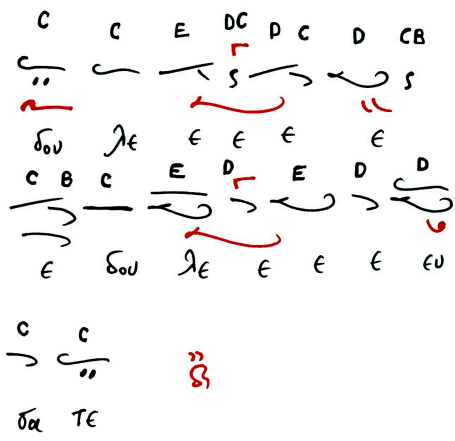 C C E DC D C D CB
δου λε ε ε ε ε
C B C E D E D D
ε δου λε ε ε ε ευ
C C
σα τε